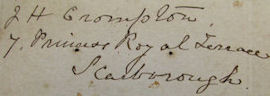 J H Crompton.
7. Princess Royal Terrace
Scarborough.